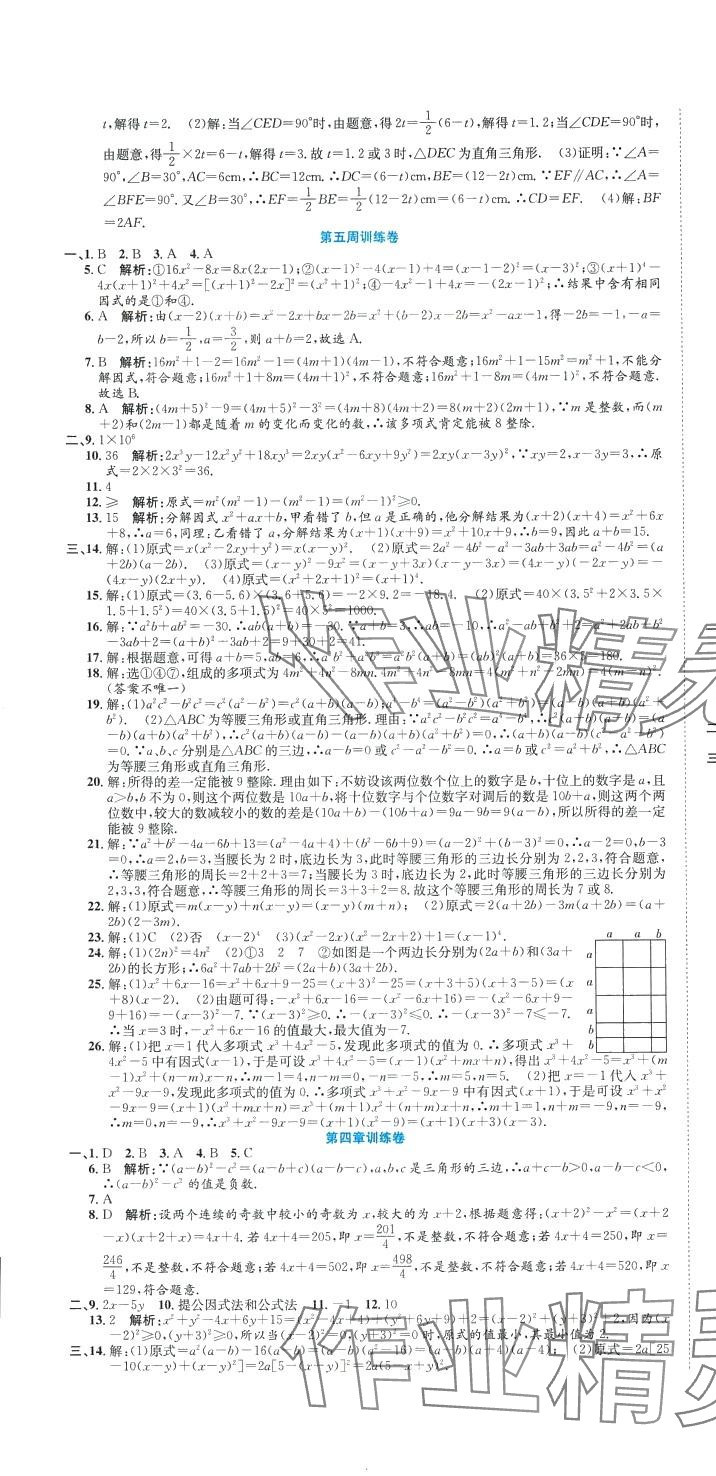 t,解得t=2. (2)解:当∠CED=90°时,由题意,得2t=1/2(6-t),解得t=1.2;当∠CDE=90°时,
由题意,得1/2×2t=6-t,解得t=3.故t=1.2或3时,△DEC为直角三角形. (3)证明:∵∠A=
90°,∠B=30°,AC=6cm,∴BC=12cm.∴DC=(6-t)cm,BE=(12-2t)cm.∵EF∥AC,∴∠A=
∠BFE=90°.又∠B=30°,∴EF=1/2BE=1/2(12-2t)cm=(6-t)cm.∴CD=EF. (4)解:BF
=2AF.
第五周训练卷
一、1. B 2. B 3. A 4. A
5. C 解析:①16x²-8x=8x(2x-1);②(x-1)²-4(x-1)+4=(x-1-2)²=(x-3)²;③(x+1)⁴-
4x(x+1)²+4x²=[(x+1)²-2x]²=(x²+1)²;④-4x²-1+4x=-(2x-1)²;∴结果中含有相同
因式的是①和④.
6. A 解析:由(x-2)(x+b)=x²-2x+bx-2b=x²+(b-2)x-2b=x²-ax-1,得-2b=-1,-a=
b-2,所以b=1/2,a=3/2,则a+b=2,故选A.
7. B 解析:16m²+1-2=16m²-1=(4m+1)(4m-1),不符合题意;16m²+1-15m²=m²+1,不能分
解因式,符合题意;16m²+1+8m=(4m+1)²,不符合题意;16m²+1-8m=(4m-1)²,不符合题意.
故选B.
8. A 解析:(4m+5)²-9=(4m+5)²-3²=(4m+8)(4m+2)=8(m+2)(2m+1),∵m是整数,而(m
+2)和(2m-1)都是随着m的变化而变化的数,∴该多项式肯定能被8整除.
二、9. 1×10⁶
10. 36 解析:2x³y-12x²y²+18xy³=2xy(x²-6xy+9y²)=2xy(x-3y)²,∵xy=2,x-3y=3,∴原
式=2×2×3²=36.
11. 4
12. ≥ 解析:原式=m²(m²-1)-(m²-1)=(m²-1)²≥0.
13. 15 解析:分解因式x²+ax+b,甲看错了b,但a是正确的,他分解结果为(x+2)(x+4)=x²+6x
+8,∴a=6,同理:乙看错了a,分解结果为(x+1)(x+9)=x²+10x+9,∴b=9,因此a+b=15.
三、14. 解:(1)原式=x(x²-2xy+y²)=x(x-y)². (2)原式=2a²-4b²-a²-3ab+3ab=a²-4b²=(a
+2b)(a-2b). (3)原式=(x-y)²-9x²=(x-y+3x)(x-y-3x)=(4x-y)(-2x-y)=-
(4x-y)(2x+y). (4)原式=(x²+2x+1)²=(x+1)⁴.
15. 解:(1)原式=(3.6-5.6)×(3.6+5.6)=-2×9.2=-18.4. (2)原式=40×(3.5²+2×3.5×
1.5+1.5²)=40×(3.5+1.5)²=40×5²=1000.
16. 解:∵a²b+ab²=-30.∴ab(a+b)=-30.∵a+b=3,∴ab=-10,∴a²-ab+b²+2=a²+2ab+b²
-3ab+2=(a+b)²-3ab+2=9+30+2=41.
17. 解:根据题意,可得a+b=5,ab=6,∴a³b²+a²b³=a²b²(a+b)=(ab)²(a+b)=36×5=180.
18. 解:选①④⑦,组成的多项式为4m²+4n²-8mn.4m²+4n²-8mn=4(m²+n²-2mn)=4(m-n)².
(答案不唯一)
19. 解:(1)a²c²-b²c²=c²(a²-b²)=c²(a+b)(a-b);a⁴-b⁴=(a²-b²)(a²+b²)=(a-b)(a+b)(a²+
b²). (2)△ABC为等腰三角形或直角三角形.理由:∵a²c²-b²c²=a⁴-b⁴,∴c²(a-b)(a+b)=(a
-b)(a+b)(a²+b²),∴c²(a-b)(a+b)-(a-b)(a+b)(a²+b²)=0,∴(a+b)(a-b)(c²-a²-b²)
=0.∵a、b、c分别是△ABC的三边,∴a-b=0或c²-a²-b²=0.∴a=b或c²=a²+b²,∴△ABC
为等腰三角形或直角三角形.
20. 解:所得的差一定能被9整除.理由如下:不妨设该两位数个位上的数字是b,十位上的数字是a,且
a>b,b不为0,则这个两位数是10a+b,将十位数字与个位数字对调后的数是10b+a,则这两个两
位数中,较大的数减较小的数的差是(10a+b)-(10b+a)=9a-9b=9(a-b),所以所得的差一定
能被9整除.
21. 解:∵a²+b²-4a-6b+13=(a²-4a+4)+(b²-6b+9)=(a-2)²+(b-3)²=0,∴a-2=0,b-3
=0,∴a=2,b=3.当腰长为2时,底边长为3,此时等腰三角形的三边长分别为2,2,3,符合题意,
∴等腰三角形的周长=2+2+3=7;当腰长为3时,底边长为2,此时等腰三角形的三边长分别为
2,3,3,符合题意,∴等腰三角形的周长=3+3+2=8.故这个等腰三角形的周长为7或8.
22. 解:(1)原式=m(x-y)+n(x-y)=(x-y)(m+n); (2)原式=2(a+2b)-3m(a+2b)=(a+
2b)(2-3m).
23. 解:(1)C (2)否 (x-2)⁴ (3)(x²-2x)(x²-2x+2)+1=(x-1)⁴.
24. 解:(1)(2n)²=4n² (2)①3 2 7 ②如图是一个两边长分别为(2a+b)和(3a+
2b)的长方形;∴6a²+7ab+2b²=(2a+b)(3a+2b).
a a b
a
a
a
b
b
25. 解:(1)x²+6x-16=x²+6x+9-25=(x+3)²-25=(x+3+5)(x+3-5)=(x
+8)(x-2). (2)由题可得:-x²+6x-16=-(x²-6x+16)=-(x²-6x+9-
9+16)=-(x-3)²-7.∵(x-3)²≥0,∴-(x-3)²≤0.∴-(x-3)²-7≤-7.
∴当x=3时,-x²+6x-16的值最大,最大值为-7.
26. 解:(1)把x=1代入多项式x³+4x²-5,发现此多项式的值为0.∴多项式x³+
4x²-5中有因式(x-1),于是可设x³+4x²-5=(x-1)(x²+mx+n),得出x³+4x²-5=x³+(m
-1)x²+(n-m)x-n,∴m-1=4,n-m=0,-n=-5,∴m=5,n=5. (2)把x=-1代入x³+
x²-9x-9,发现此多项式的值为0.∴多项式x³+x²-9x-9中有因式(x+1),于是可设x³+
x²-9x-9=(x+1)(x²+mx+n)=x³+(m+1)x²+(n+m)x+n,∴m+1=1,n+m=-9,n=-9,
∴m=0,n=-9,∴x³+x²-9x-9=(x+1)(x²-9)=(x+1)(x+3)(x-3).
第四章训练卷
一、1. D 2. B 3. A 4. B 5. C
6. B 解析:∵(a-b)²-c²=(a-b+c)(a-b-c),a,b,c是三角形的三边,∴a+c-b>0,a-b-c<0,
∴(a-b)²-c²的值是负数.
7. A
8. D 解析:设两个连续的奇数中较小的奇数为x,较大的为x+2,根据题意得:(x+2)²-x²=(x+2
-x)(x+2+x)=4x+4.若4x+4=205,即x=201/4,不是整数,不符合题意;若4x+4=250,即x=
246/4,不是整数,不符合题意;若4x+4=502,即x=498/4,不是整数,不符合题意;若4x+4=520,即x
=129,符合题意.
二、9. 2x-5y 10. 提公因式法和公式法 11. -1 12. 10
13. 2 解析:x²+y²-4x+6y+15=(x²-4x+4)+(y²+6y+9)+2=(x-2)²+(y+3)²+2,因为(x
-2)²≥0,(y+3)²≥0,所以当(x-2)²=0,(y+3)²=0时,原式的值最小,其最小值为2.
三、14. 解:(1)原式=a²(a-b)-16(a-b)=(a-b)(a²-16)=(a-b)(a+4)(a-4); (2)原式=2a[25
-10(x-y)+(x-y)²]=2a[5-(x-y)]²=2a(5-x+y)².
作业精灵
作业精灵
一
三